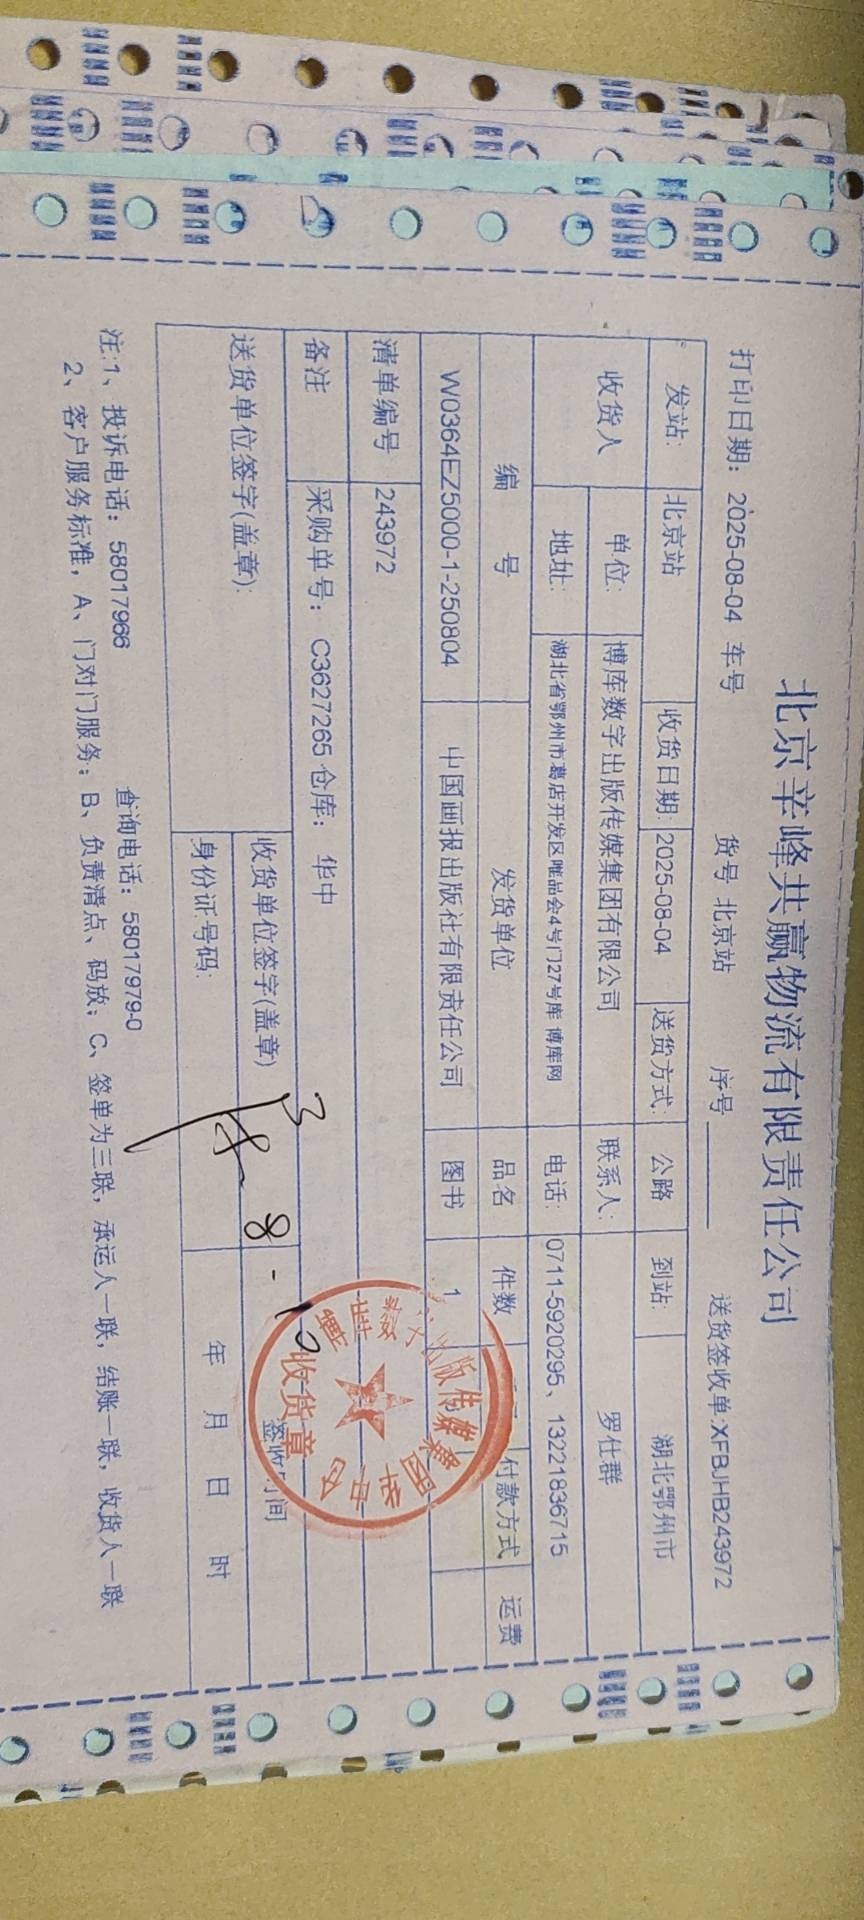 北京辛峰共赢物流有限责任公司
打印日期: 2025-08-04 车号 货号 北京站 序号 送货签收单:XFBJHB243972
发站: 北京站 收货日期: 2025-08-04 送货方式: 公路 到站: 湖北鄂州市
收货人 单位: 博库数字出版传媒集团有限公司 联系人: 罗仕群
地址: 湖北省鄂州市葛店开发区唯品会4号门27号库 博库网 电话: 0711-5920295、13221836715
编 号 发货单位 品名 件数 付款方式 运费
W0364EZ5000-1-250804 中国画报出版社有限责任公司 图书 1
清单编号 243972
备注 采购单号: C3627265 仓库: 华中
送货单位签字(盖章): 收货单位签字(盖章) 签收时间
身份证号码: 年 月 日 时
8-10
博库数字出版传媒集团华中仓
收货章
注:1、投诉电话: 58017966 查询电话: 58017979-0
2、客户服务标准, A、门对门服务; B、负责清点、码放; C、签单为三联, 承运人一联, 结账一联, 收货人一联